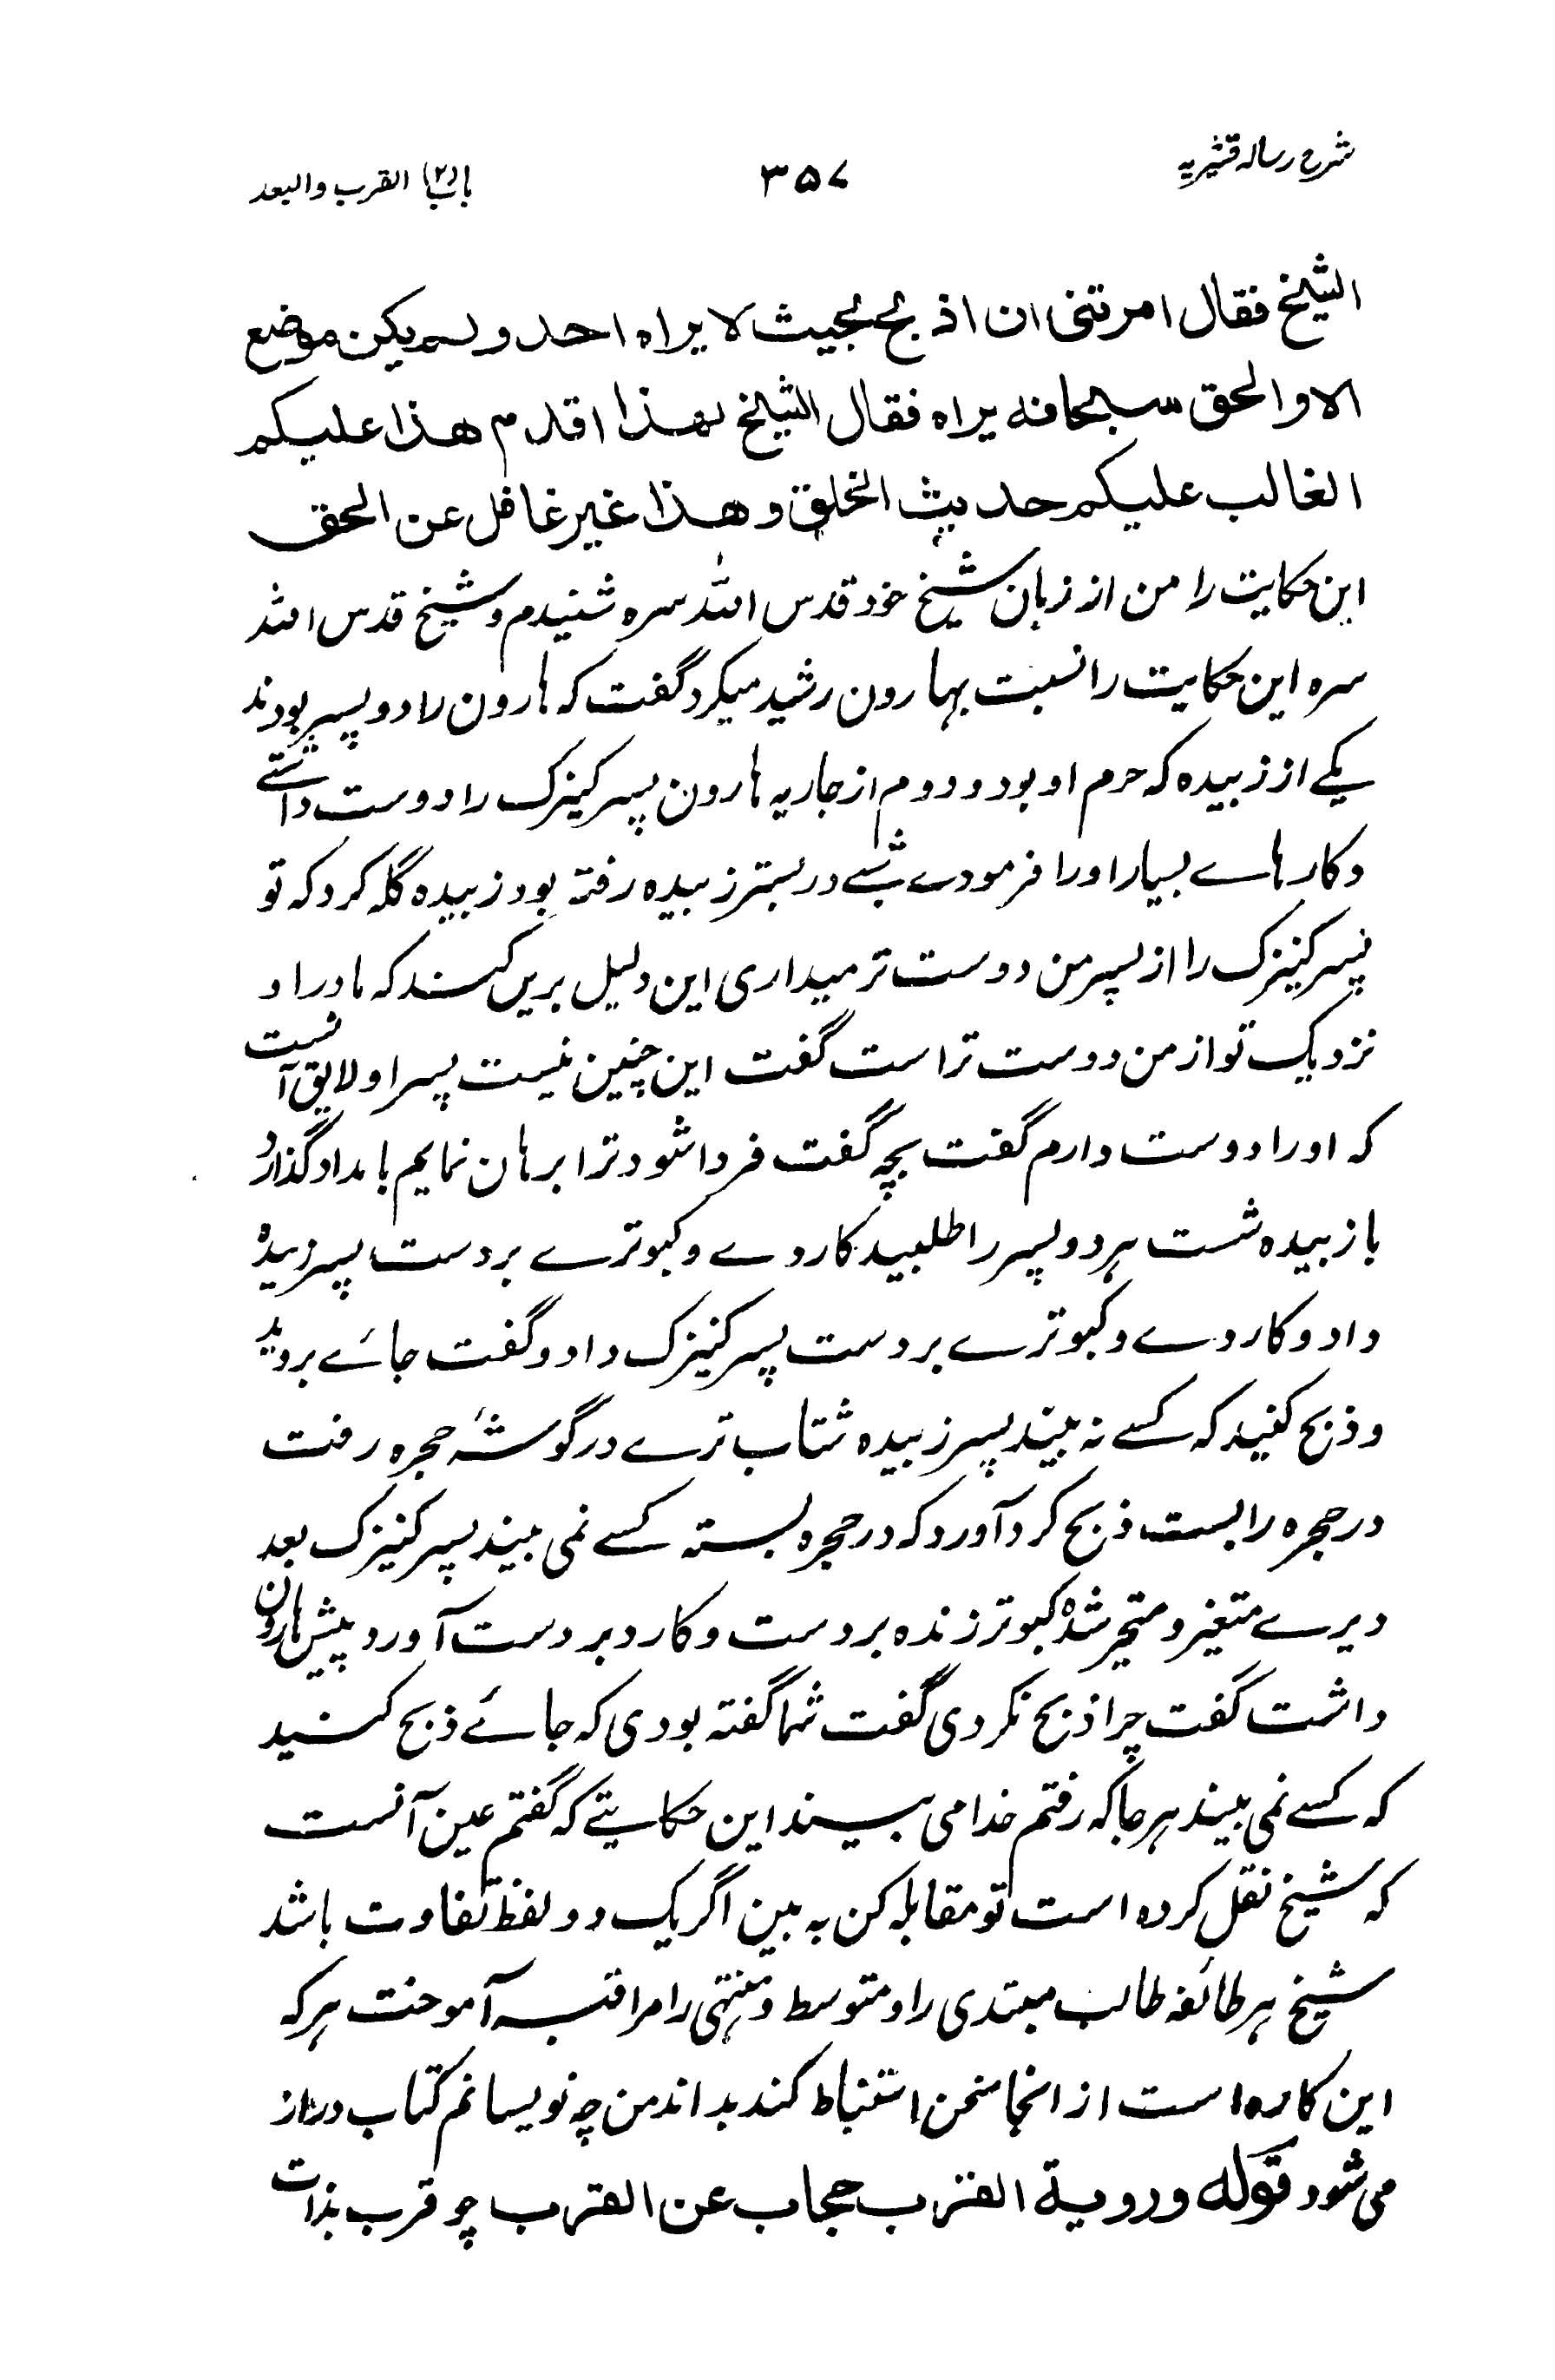 شرح رسالہ قشیریہ
۳۵۷
باب (۲) القرب والبعد
الشیخ فقال امرتنی ان اذبح بحیث لا یراہ احد ولم یکن موضع
الا والحق سبحانہ یراہ فقال الشیخ لھذا اقدم ھذا علیکم
الغالب علیکم حدیث الخلق وھذا غیر غافل عن الحق
این حکایت را من از زبان شیخ خود قدس اللہ سرہ شنیدم و شیخ قدس اللہ
سرہ این حکایت را نسبت بہارون رشید میکرد گفت کہ ہارون را دو پسر بودند
یکے از زبیدہ کہ حرم او بود و دوم از جاریہ ہارون پسر کنیزک را دوست داشتے
و کارہاے بسیار اورا فرمودے شبے در بستر زبیدہ رفتہ بود زبیدہ گلہ کرد کہ تو
پسر کنیزک را از پسر من دوست تر میداری این دلیل برین کند کہ مادر او
نزدیک تو از من دوست تر است گفت این چنین نیست پسر او لایق آنست
کہ اورا دوست دارم گفت بچہ گفت فردا شود ترا برہان نمایم بامداد گذارد
با زبیدہ شست ہر دو پسر را طلبید کاردے و کبوترے بر دست پسر زبیدہ
داد و کاردے و کبوترے بر دست پسر کنیزک داد و گفت جاۓ بروید
و ذبح کنید کہ کسے نہ بیند پسر زبیدہ شتاب ترے در گوشۂ حجرہ رفت
در حجرہ را بست ذبح کرد آورد کہ در حجرہ بستہ کسے نمی بیند پسر کنیزک بعد
دیرے متغیر و متحیر شدہ کبوتر زندہ بر دست و کارد بر دست آورد پیش ہارون
داشت گفت چرا ذبح نکردی گفت شما گفتہ بودی کہ جاۓ ذبح کنید
کہ کسے نمی بیند ہر جا کہ رفتم خدا می بیند این حکایتے کہ گفتم عین آنست
کہ شیخ نقل کردہ است تو مقابلہ کن بہ بین اگر یک دو لفظ تفاوت باشد
شیخ ہر طائفہ طالب مبتدی را و متوسط و منتہی را مراقبہ آموخت ہر کہ
این کارہ است از انجا سخن استنباط کند بداند من چہ نویسانم کتاب دراز
می شود قولہ ورویة القرب حجاب عن القرب چو قرب بذات